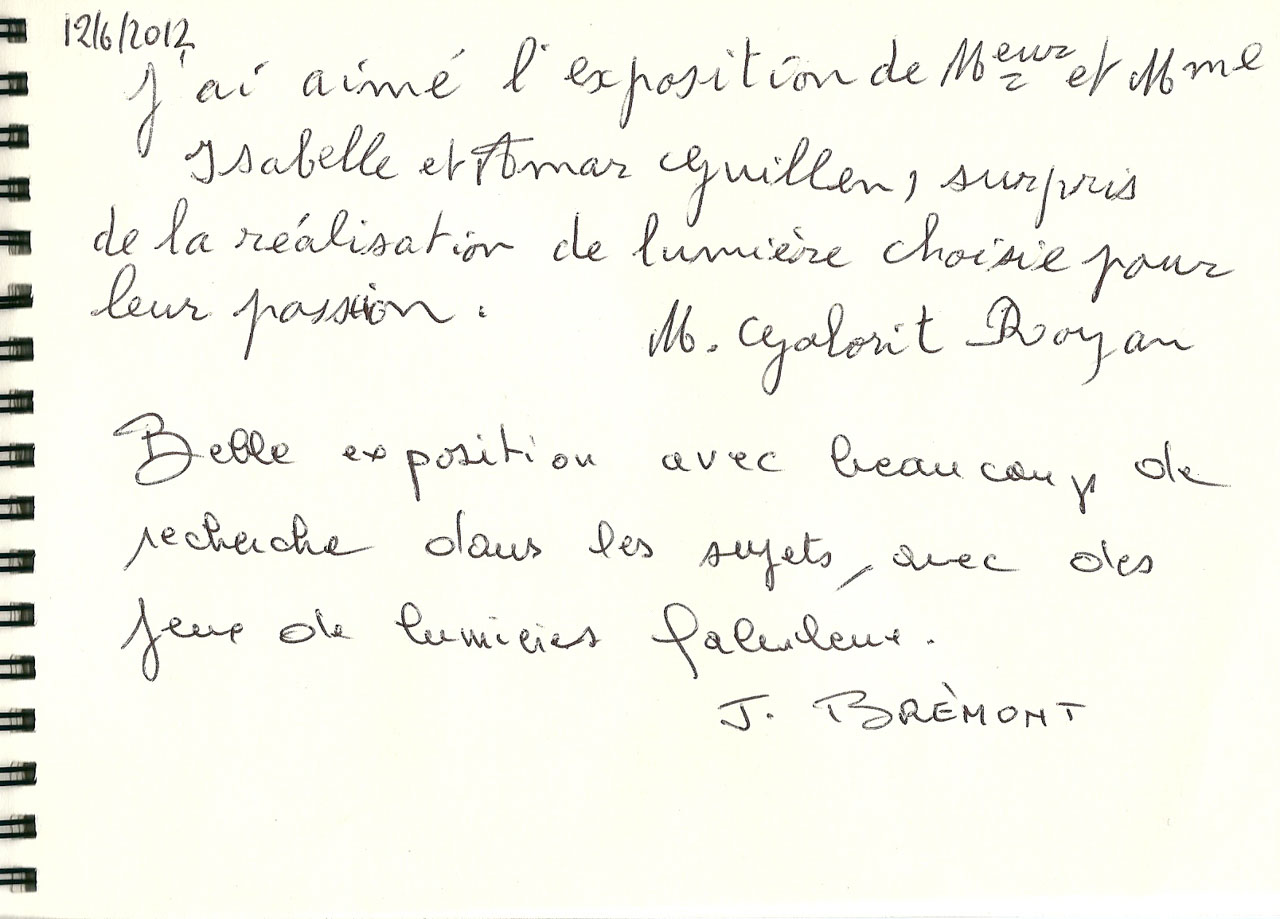 12/6/2012
J'ai aimé l'exposition de Meur et Mme
Isabelle et Amar Guillen, surpris
de la réalisation de lumière choisie pour
leur passion.
M. Galorit Royan
Belle exposition avec beaucoup de
recherche dans les sujets, avec des
jeux de lumières fabuleux.
J. BRÈMONT